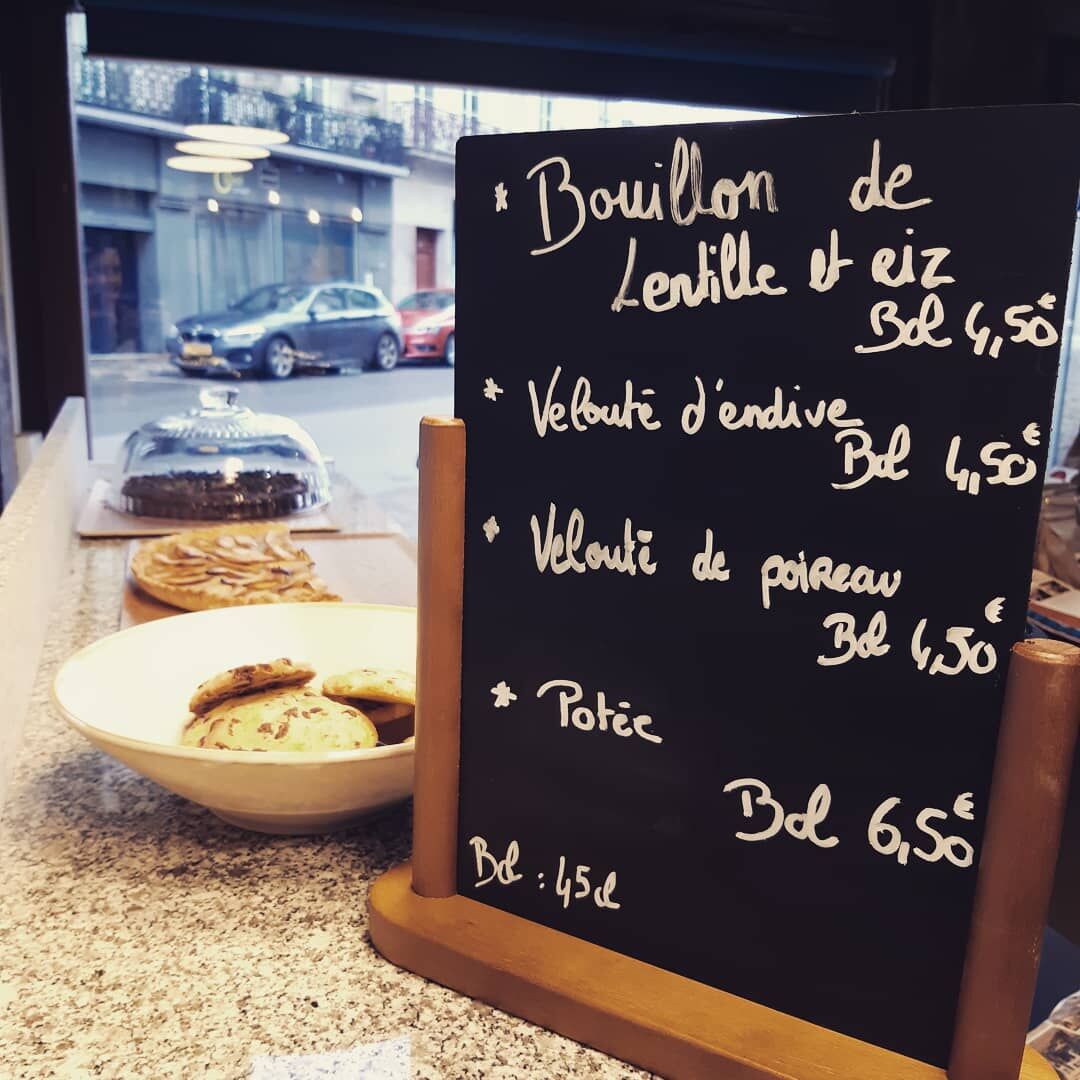 * Bouillon de
Lentille et eiz
Bol 4,50€
* Velouté d'endive
Bol 4,50€
* Velouté de poireau
Bol 4,50€
* Potée
Bol 6,50€
Bol : 45cl